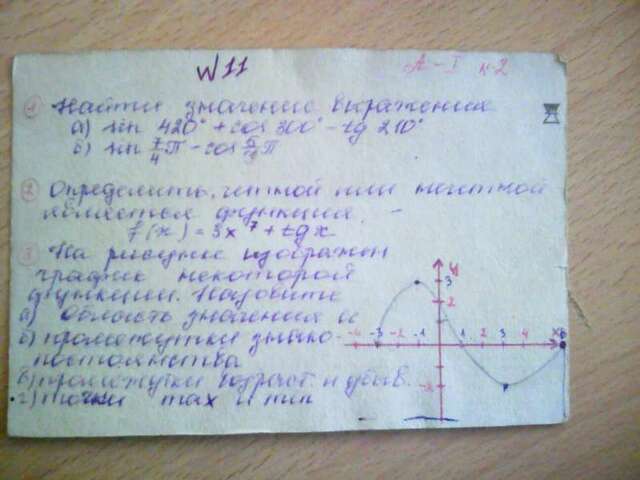 W 11
A-I к-2
1 Найти значение выражения
а) sin 420° + cos 300° - tg 210°
б) sin 7/4 π - cos π
2 Определить, четной или нечетной
является функция
f(x) = 3x⁷ + tgx
3 На рисунке изображен
график некоторой
функции. Назовите
а) область значения
б) промежутки знако-
постоянства
в) промежутки возраст. и убыв.
г) точки max и min
y
3
2
-4 -3 -2 -1 1 2 3 4 5 6 x
-2